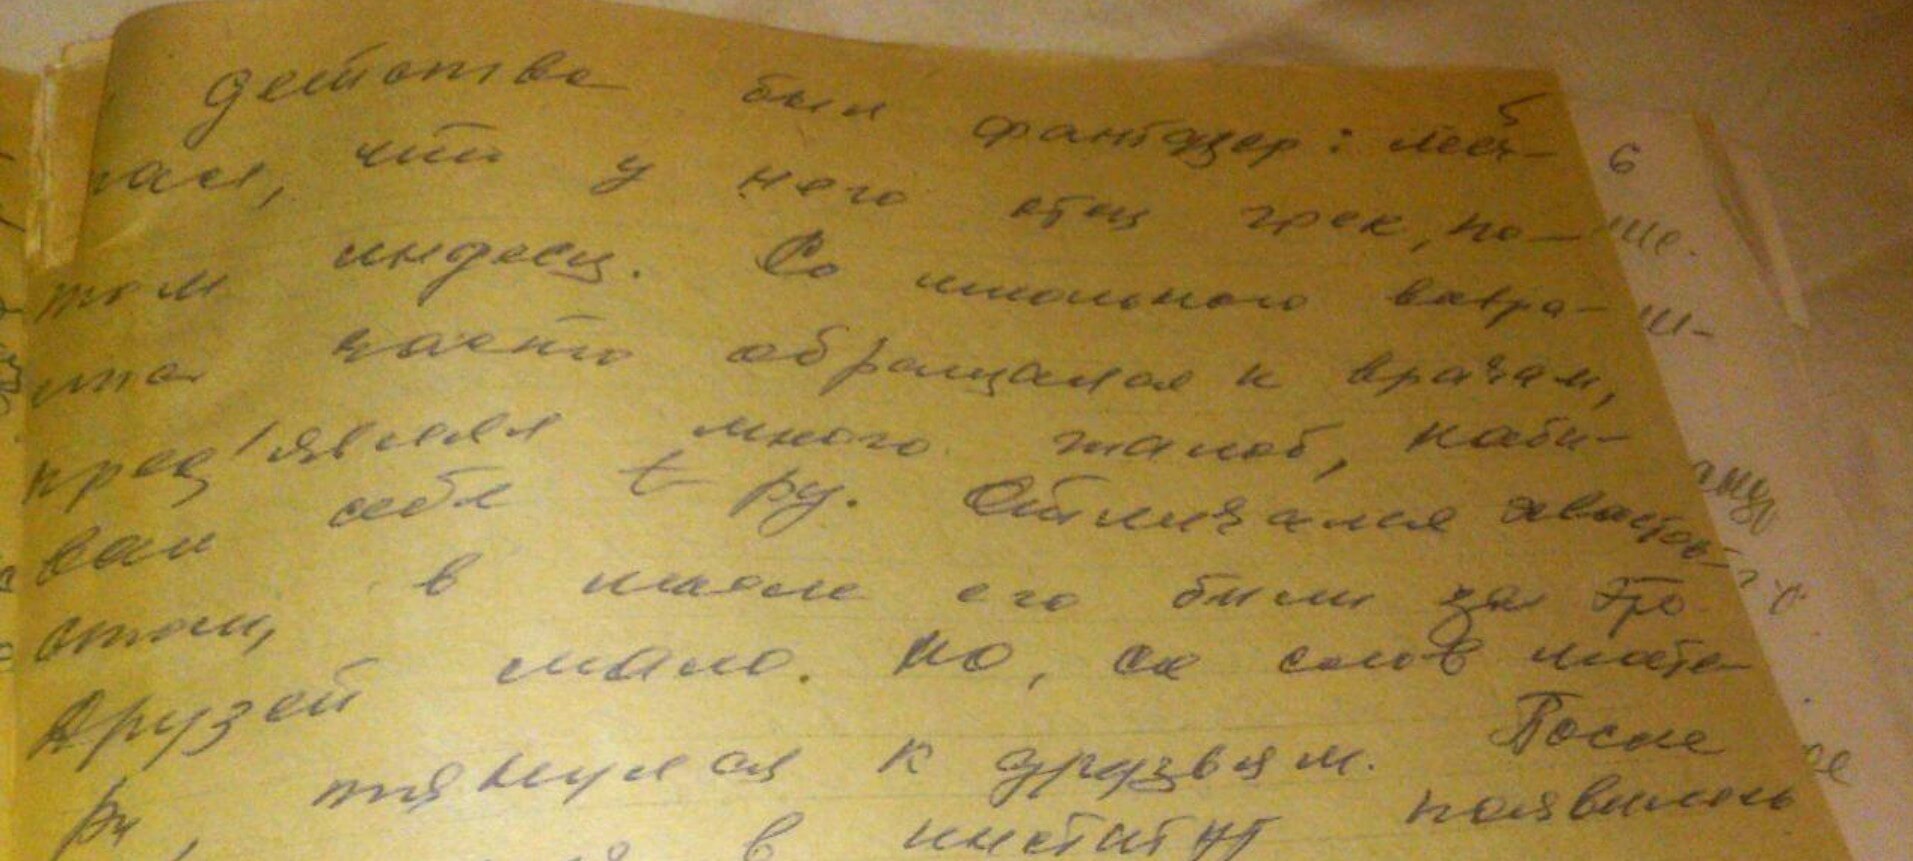 детства был фантазер: меч-
тал, что у него отец грек, по-
том индеец. Со школьного возра-
ста часто обращался к врачам,
пред'являл много жалоб, наби-
вал себе t ру. Отличался хваст
в школе его били за это.
Друзей мало. Но, со слов мате-
ри, тянулся к друзьям. После
в институт появились